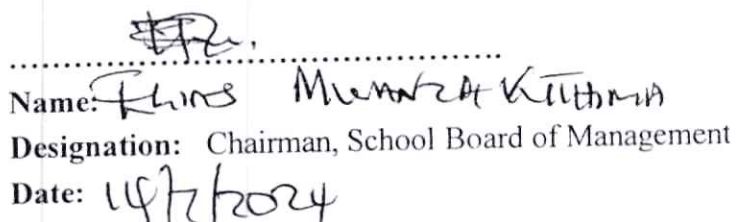 Name: Elius Mwanzia Kithima
Designation: Chairman, School Board of Management
Date: 14/2/2024